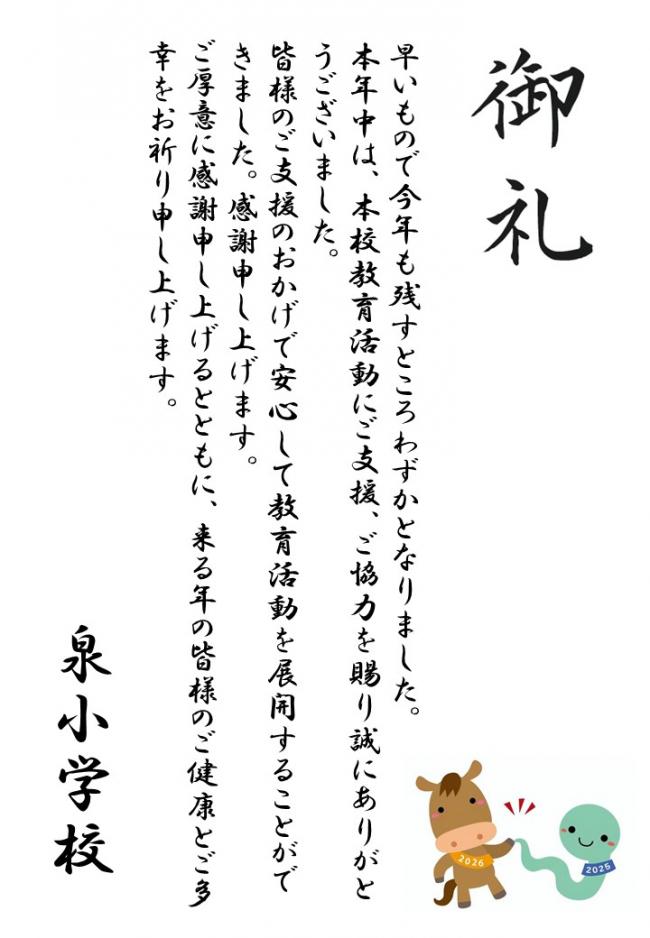 御礼
早いもので今年も残すところわずかとなりました。
本年中は、本校教育活動にご支援、ご協力を賜り誠にありがと
うございました。
皆様のご支援のおかげで安心して教育活動を展開することがで
きました。感謝申し上げます。
ご厚意に感謝申し上げるとともに、来る年の皆様のご健康とご多
幸をお祈り申し上げます。
泉小学校
2026
2025